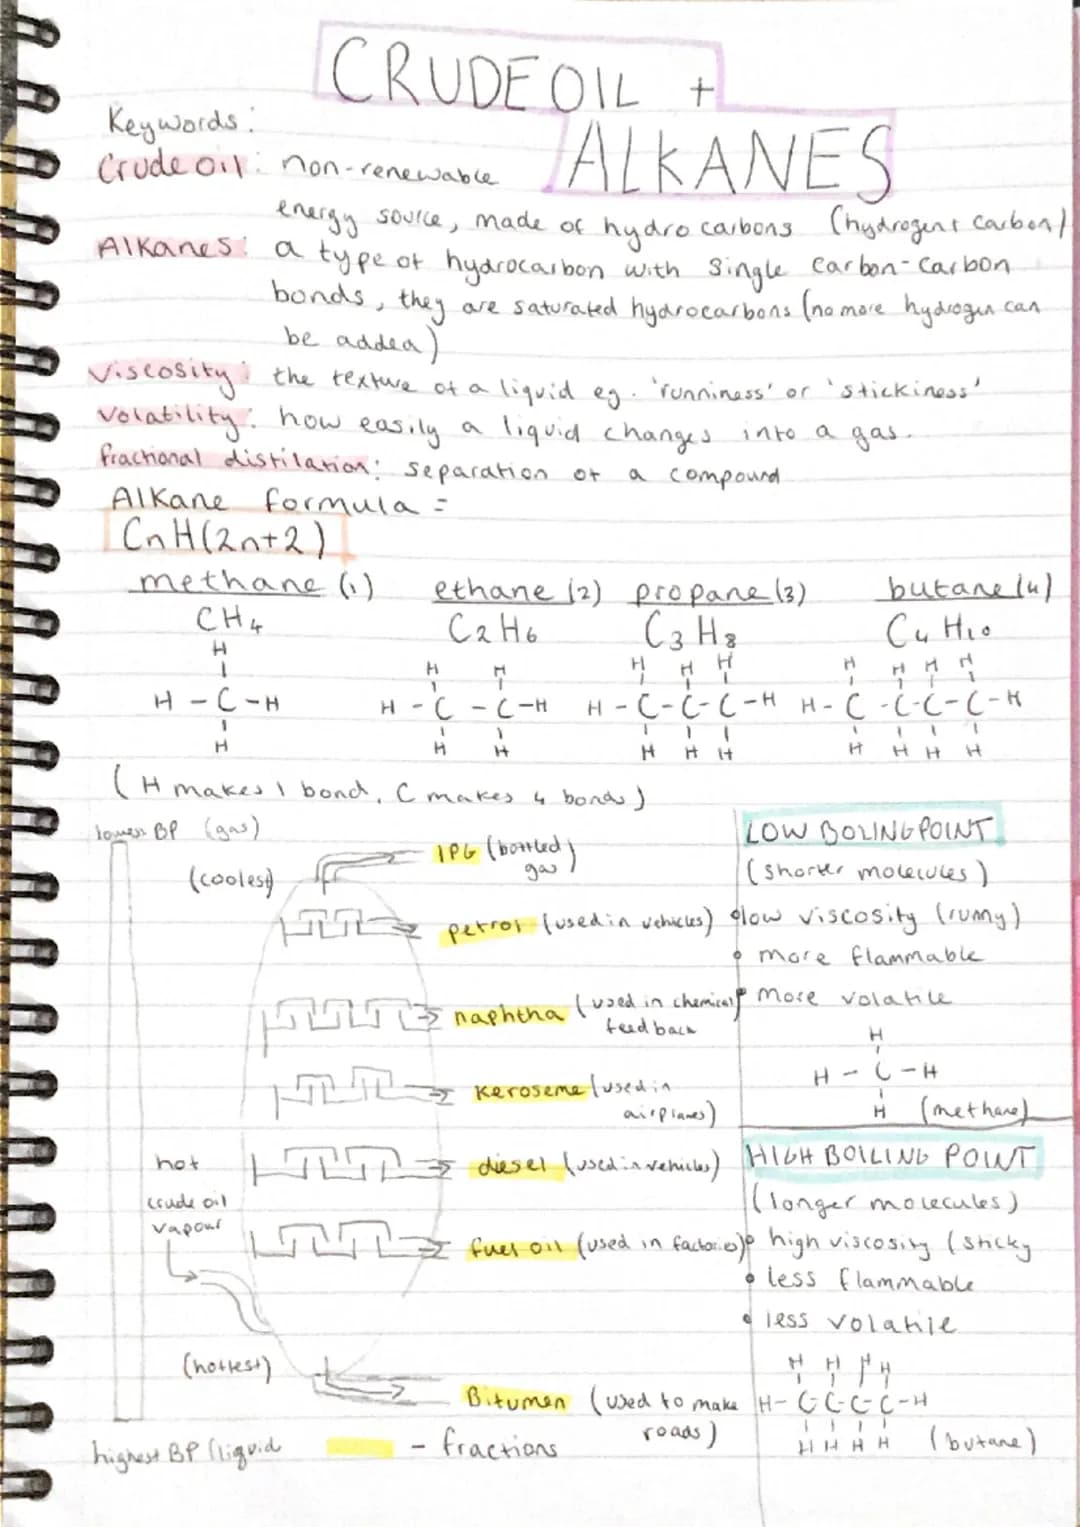 CRUDE OIL +
ALKANES
Keywords:
Crude oil: non-renewable
energy source, made of hydrocarbons (hydrogen + carbon)
Alkanes: a type of hydrocarbon with single carbon-carbon
bonds, they are saturated hydrocarbons (no more hydrogen can
be added)
Viscosity: the texture of a liquid eg. 'runniness' or 'stickiness'
Volatility: how easily a liquid changes into a gas.
fractional distilation: separation of a compound
Alkane formula =
CnH(2n+2)
methane (1) ethane (2) propane (3) butane (4)
CH4 C2H6 C3H8 C4H10
H H H H H H H H H H
H - C - H H - C - C - H H - C - C - C - H H - C - C - C - C - H
H H H H H H H H H H
(H makes 1 bond, C makes 4 bonds)
lowest BP (gas)
(coolest)
LPG (bottled gas)
petrol (used in vehicles)
naphtha (used in chemical
feedback
Keroseme (used in
airplanes)
diesel (used in vehicles)
hot
crude oil
vapour
fuel oil (used in factories)
(hottest)
Bitumen (used to make
roads)
highest BP (liquid
- fractions
LOW BOLING POINT
(shorter molecules)
low viscosity (runny)
more flammable
more volatile
H
H - C - H
H (methane)
HIGH BOILING POINT
(longer molecules)
high viscosity (sticky
less flammable
less volatile
H H H H
H - C - C - C - C - H
H H H H (butane)